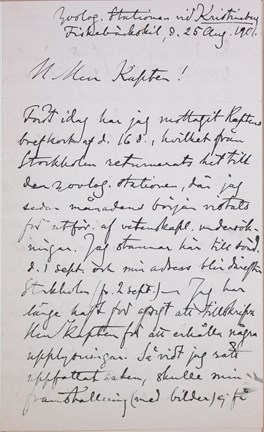 Zoolog. Stationen vid Kristineberg
Fiskebäckskil, d. 25 Aug. 1901.
Min Kapten!
Först idag har jag mottagit Kaptens
brefkort af d. 16 d., hvilket från
Stockholm returnerats hit till
den zoolog. stationen, där jag
sedan månadens början vistats
för utför. af vetenskapl. undersök-
ningar. Jag stannar här till
d. 1 sept. och min adress blir därefter
Stockholm (fr. 2 sept.) — Jag har
länge haft för afsigt att tillskrifva
Kapten för att erhålla några
upplysningar. Så vidt jag rätt
uppfattat saken, skulle min
framställning (med bilder) ej få